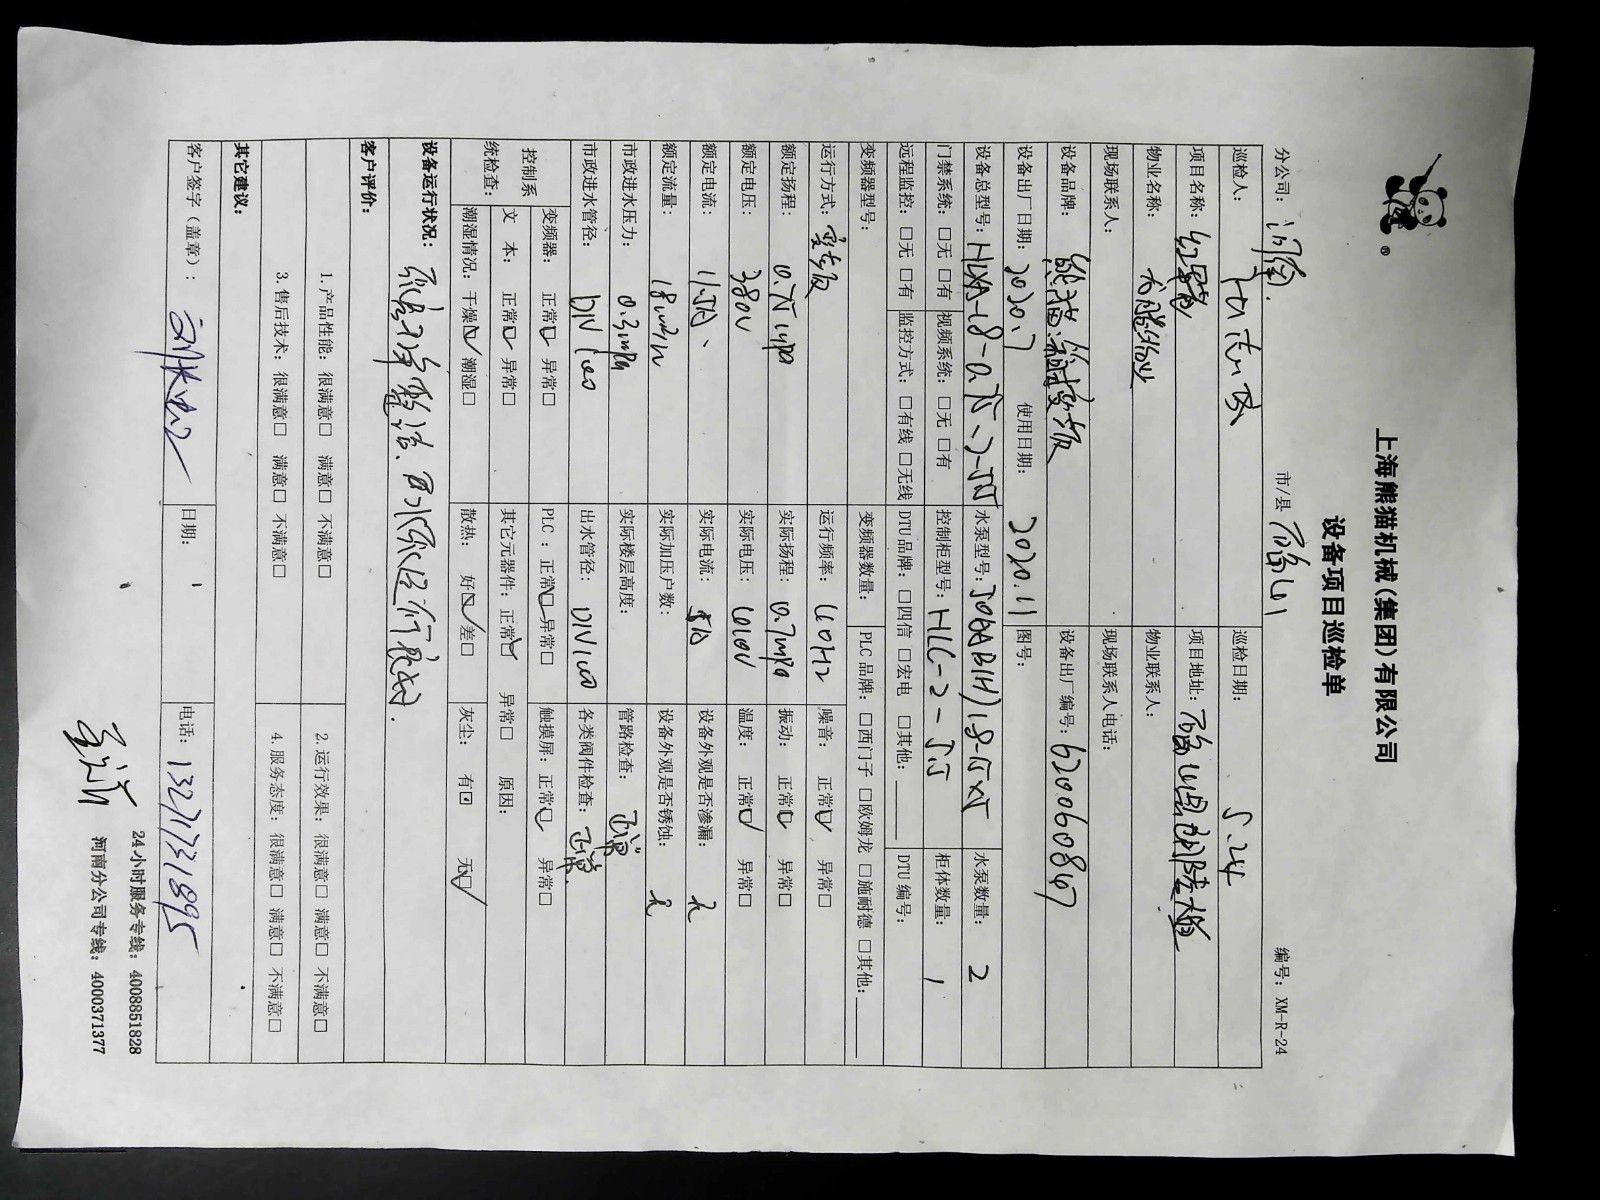 ®
上海熊猫机械(集团)有限公司
设备项目巡检单
分公司：河南 市/县 编号：XM-R-24
巡检人： 巡检日期：5.24
项目名称： 项目地址：
物业名称： 物业联系人：
现场联系人： 现场联系人电话：
设备品牌： 设备出厂编号：6200060847
设备出厂日期：2020.7 使用日期：2020.11 图号：
设备总型号：HLXA-18-0.75-2-5.5 水泵型号： 水泵数量：2
门禁系统：□无 □有 视频系统：□无 □有 控制柜型号：HLC-2-5.5 柜体数量：1
远程监控：□无 □有 监控方式：□有线 □无线 DTU品牌：□四信 □宏电 □其他：____ DTU编号：
变频器型号： 变频器数量： PLC品牌：□西门子 □欧姆龙 □施耐德 □其他:____
运行方式： 运行频率： 噪音：正常☑ 异常□
额定扬程：0.75mpa 实际扬程：0.7mpa 振动：正常☑ 异常□
额定电压：380V 实际电压： 温度：正常☑ 异常□
额定电流：11.5A、 实际电流：5A 设备外观是否渗漏：无
额定流量：18m3/h 实际加压户数： 设备外观是否锈蚀：无
市政进水压力：0.3mpa 实际楼层高度： 管路检查：正常
市政进水管径：DN100 出水管径：DN100 各类阀件检查：正常.
控制系统检查： 变频器：正常☑ 异常□ PLC：正常☑ 异常□ 触摸屏：正常☑ 异常□
文 本：正常☑ 异常□ 其它元器件：正常☑ 异常□ 原因：
潮湿情况：干燥☑ 潮湿□ 散热：好☑ 差□ 灰尘：有□ 无☑
设备运行状况：泵房干净整洁、
客户评价：
1. 产品性能：很满意□ 满意□ 不满意□ 2. 运行效果：很满意□ 满意□ 不满意□
3. 售后技术：很满意□ 满意□ 不满意□ 4. 服务态度：很满意□ 满意□ 不满意□
其它建议：
客户签字（盖章）： 日期： 电话：13271731895
24小时服务专线：4008851828
河南分公司专线：4000371377